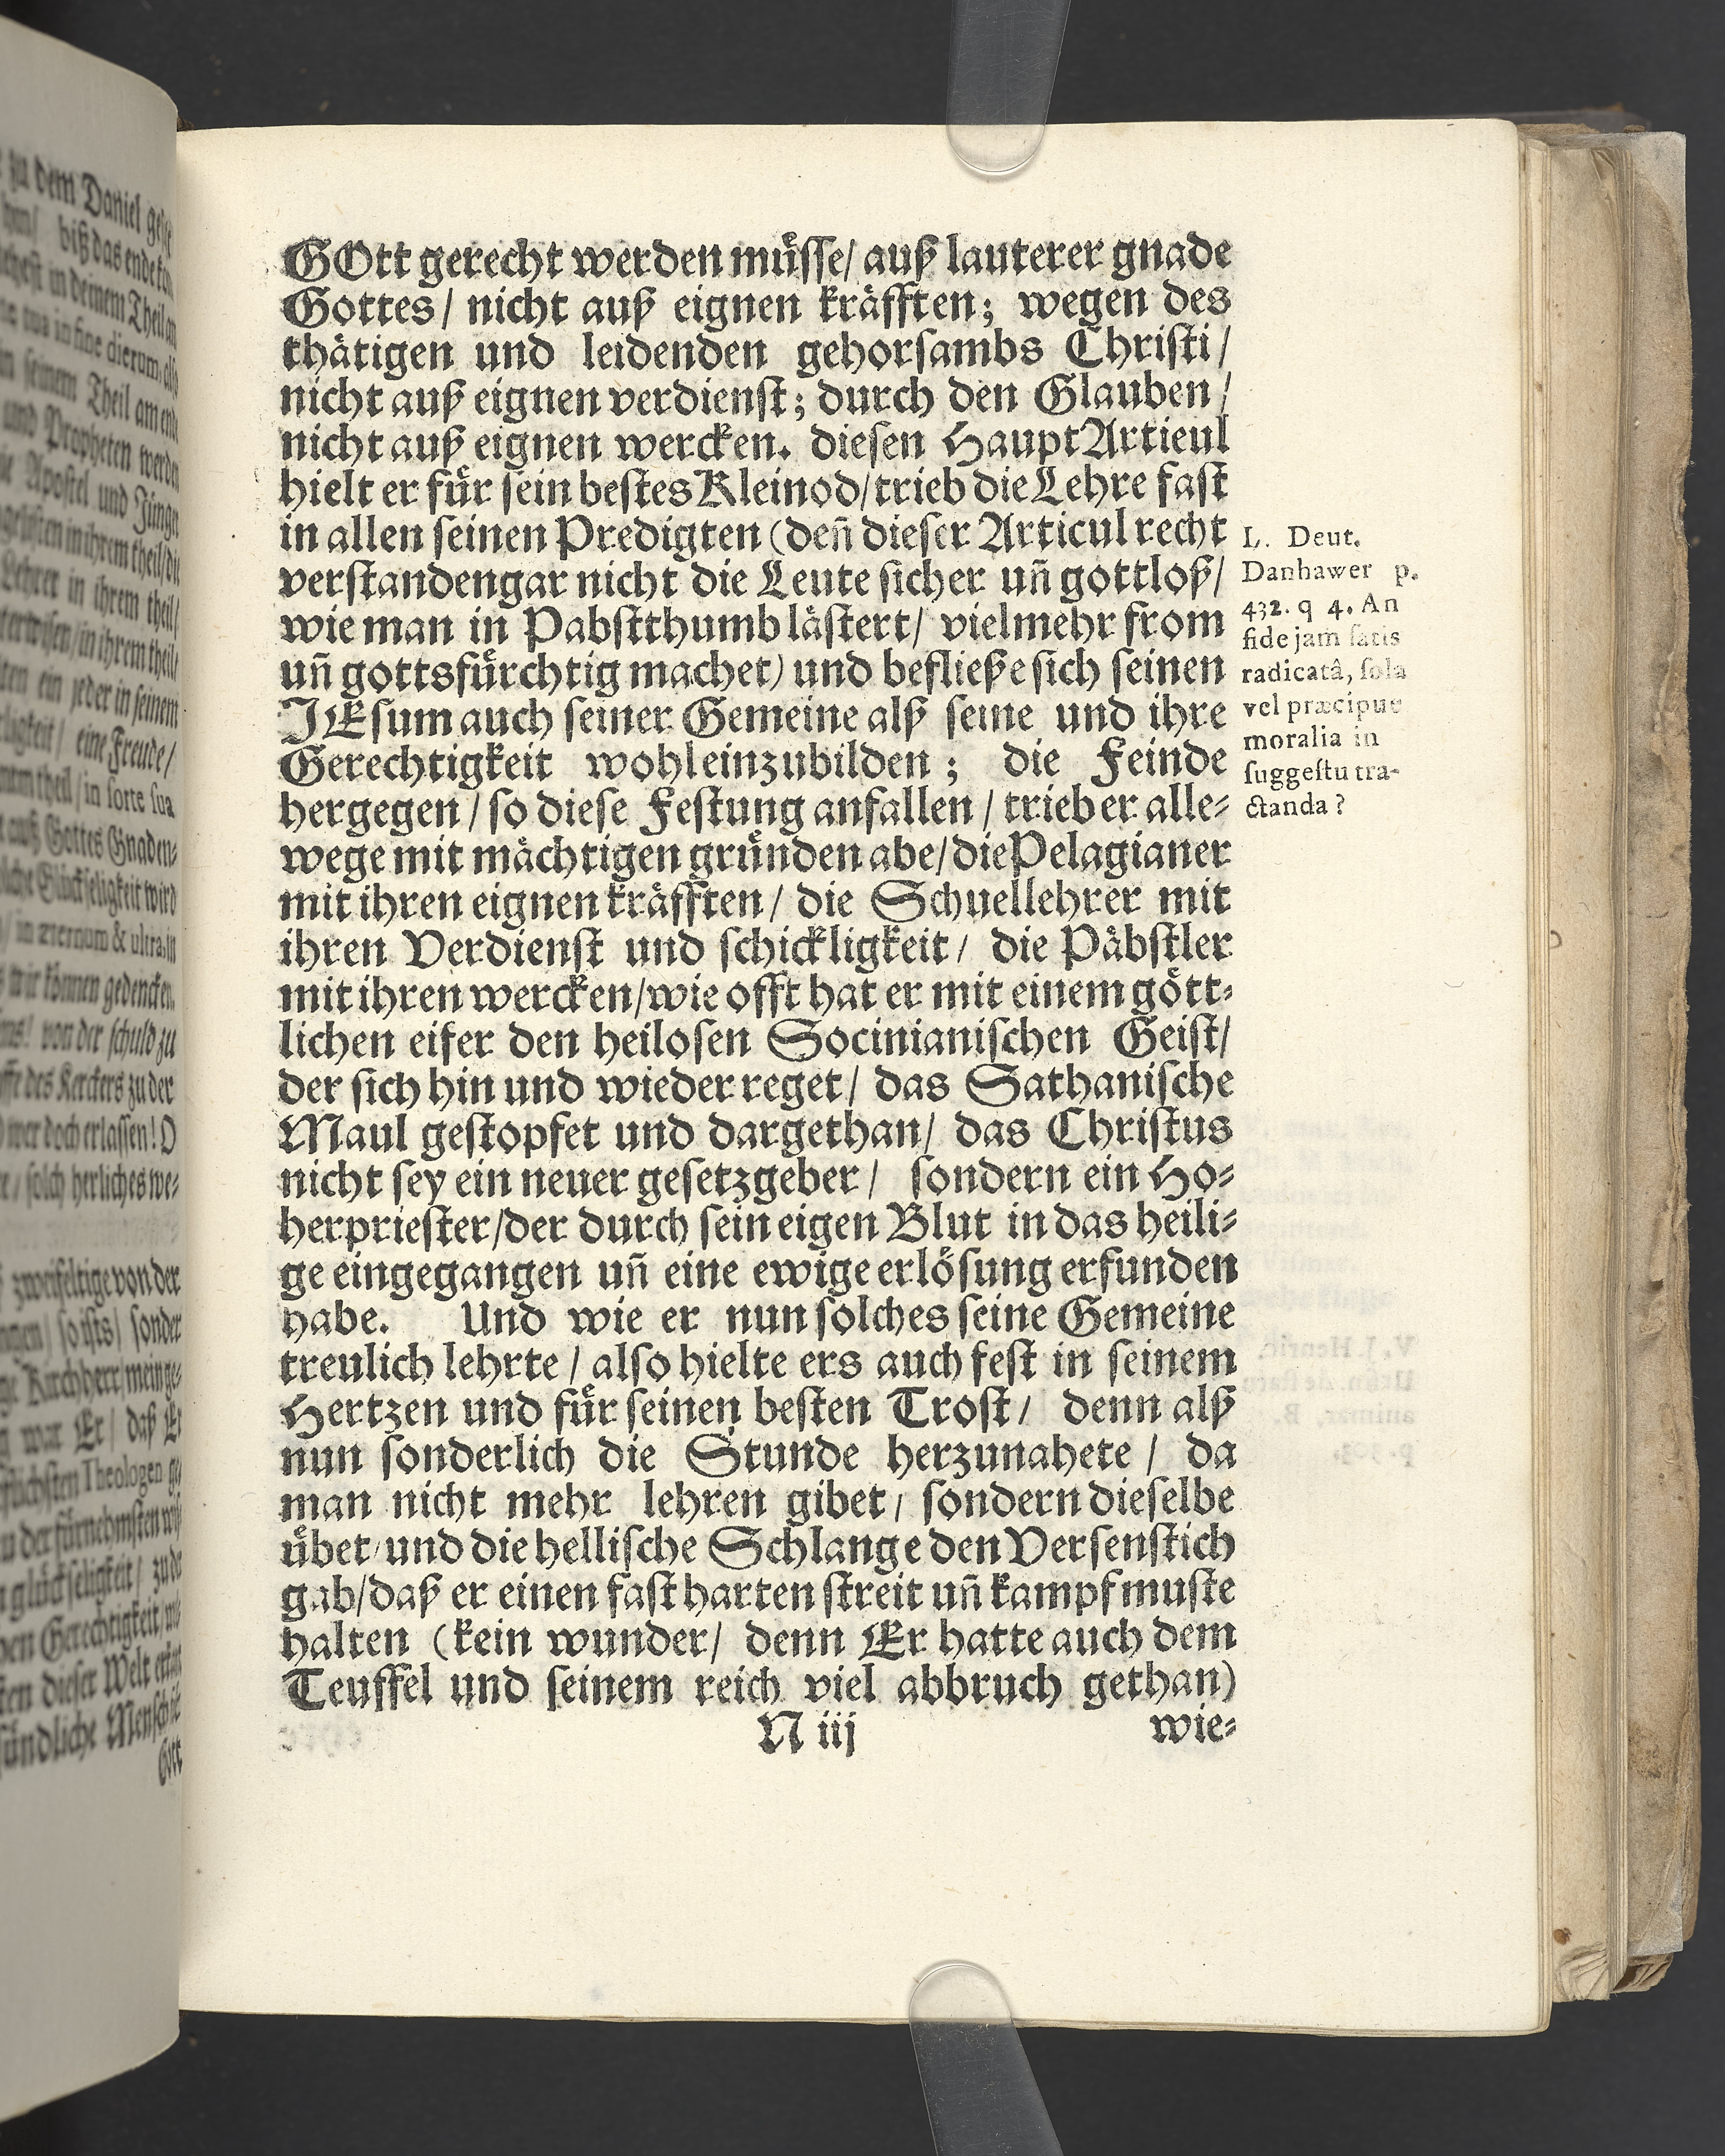 GOtt gerecht werden müsse/ auß lauterer gnade
Gottes/ nicht auß eignen kräfften; wegen des
thätigen und leidenden gehorsambs Christi/
nicht auß eignen verdienst; durch den Glauben/
nicht auß eignen wercken. diesen HauptArticul
hielt er für sein bestes Kleinod/ trieb die Lehre fast
in allen seinen Predigten (deñ dieser Articul recht
verstanden gar nicht die Leute sicher uñ gottloß/
wie man in Pabstthumb lästert/ vielmehr from
uñ gottsfürchtig machet) und befließe sich seinen
JEsum auch seiner Gemeine alß seine und ihre
Gerechtigkeit wohl einzubilden; die Feinde
hergegen/ so diese Festung anfallen/ trieb er alle-
wege mit mächtigen gründen abe/ die Pelagianer
mit ihren eignen kräfften/ die Schuellehrer mit
ihren Verdienst und schickligkeit/ die Päbstler
mit ihren wercken/ wie offt hat er mit einem gött-
lichen eifer den heilosen Socinianischen Geist/
der sich hin und wieder reget/ das Sathanische
Maul gestopfet und dargethan/ das Christus
nicht sey ein neuer gesetzgeber/ sondern ein Ho-
herpriester/ der durch sein eigen Blut in das heili-
ge eingegangen uñ eine ewige erlösung erfunden
habe. Und wie er nun solches seine Gemeine
treulich lehrte/ also hielte ers auch fest in seinem
Hertzen und für seinen besten Trost/ denn alß
nun sonderlich die Stunde herzunahete/ da
man nicht mehr lehren gibet/ sondern dieselbe
übet/ und die hellische Schlange den Versenstich
gab/ daß er einen fast harten streit uñ kampf muste
halten (kein wunder/ denn Er hatte auch dem
Teuffel und seinem reich viel abbruch gethan)
N iij wie-
L. Deut.
Danhawer p.
432. q 4. An
fide jam satis
radicatâ, sola
vel præcipue
moralia in
suggestu tra-
ctanda?